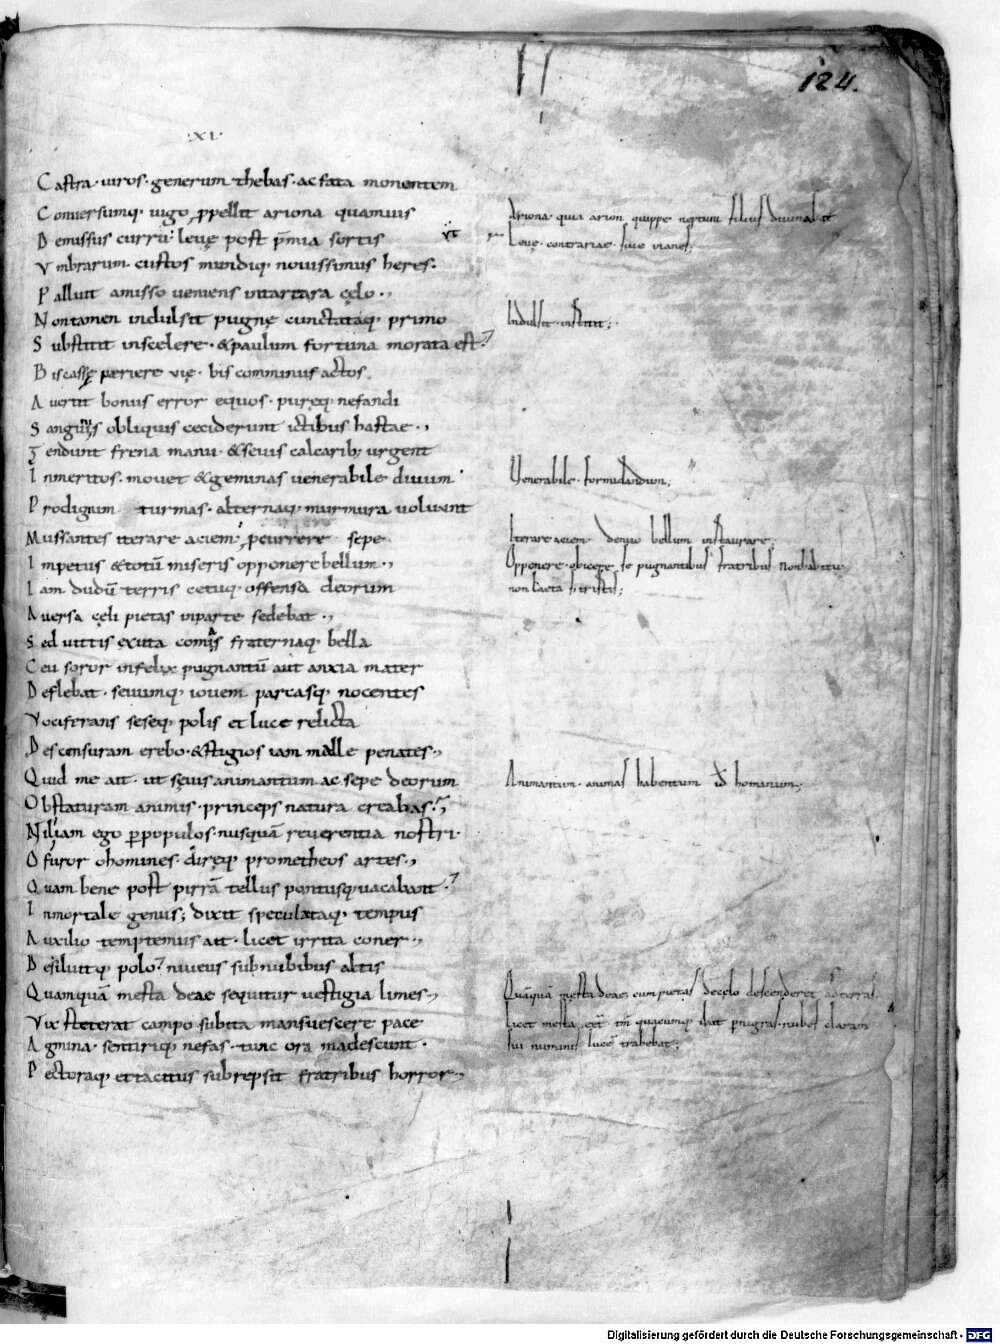 124.
·XI·
Castra·uiros·generum thebas·ac fata monentem
Conuersumq; uigo ꝓpellit ariona quamuis
Demissus currū leuę post p̄mia sortis
Vmbrarum custos mundiq; nouissimus heres·
Palluit amisso ueniens intartara cęlo·,
Nontamen indulsit pugnę cunctataq; primo
Substitit inscelere·&paulum fortuna morata est·
Biscassę periere uię·bis comminus actos
Auertit bonus error equos·puręq; nefandi
Sanguinis obliquis ceciderunt ictibus hastae·,
Tendunt frena manu·&seuis calcarib; urgent
Inmeritos·mouet &geminas uenerabile diuum
Prodigium turmas·alternaq; murmura uoluunt
Mussantes iterare aciem ꝓcurrere sepe
Impetus &totū miseris opponere bellum·,
Iam dudū terris cetuq; offensa deorum
Auersa cęli pietas inparte sedebat·,
Sed uittis exuta comas fraternaq; bella
Ceu soror infelix pugnantū aut anxia mater
Deflebat·seuumq; iouem parcasq; nocentes
Vociferans seseq; polis et luce relicta
Descensuram erebo·&stigios iam malle penates·,
Quid me ait·ut sęuis animantum ac sepe deorum
Obstaturam animis·princeps natura creabas·
Nil iam ego ꝑpopulos·nusquā reuerentia nostri·
O furor ohomines·diręq; prometheos artes·,
Quam bene post pirrā tellus pontusq; uacabant·
Inmortale genus; dixit speculataq; tempus
Auxilio temptemus ait·licet irrita coner·,
Desiluitq; polo niueus subnubibus altis
Quamquā mesta deae sequitur uestigia limes·,
Vix steterat campo subita mansuescere pace
Agmina·sentiriq; nefas·tunc ora madescunt·
Pectoraq; et tacitus subrepsit fratribus horror·,
Ariona· quia arion quippe neptuni filius
Leuę·contrariae siue inanes;
Indulsit·institit;
Venerabile·formidandum;
Iterare aciem denuo bellum instaurare;
Opponere·obicere se pugnantibus fratribus
non laeta tristis;
Animantum·animas habentum hominum;
Quāquā mesta deae cum pietas decęlo descenderet adterras·
licet mesta
sui numinis lucē trahebat;
Digitalisierung gefördert durch die Deutsche Forschungsgemeinschaft - DFG